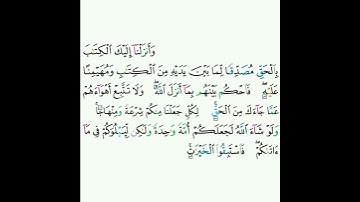 وَأَنزَلْنَا إِلَيْكَ الْكِتَٰبَ
بِالْحَقِّ مُصَدِّقًا لِّمَا بَيْنَ يَدَيْهِ مِنَ الْكِتَٰبِ وَمُهَيْمِنًا
عَلَيْهِ ۖ فَاحْكُم بَيْنَهُم بِمَا أَنزَلَ اللَّهُ ۖ وَلَا تَتَّبِعْ أَهْوَاءَهُمْ
عَمَّا جَاءَكَ مِنَ الْحَقِّ ۚ لِكُلٍّ جَعَلْنَا مِنكُمْ شِرْعَةً وَمِنْهَاجًا ۚ
وَلَوْ شَاءَ اللَّهُ لَجَعَلَكُمْ أُمَّةً وَٰحِدَةً وَلَٰكِن لِّيَبْلُوَكُمْ فِي مَا
ءَاتَىٰكُمْ ۖ فَاسْتَبِقُوا الْخَيْرَٰتِ ۚ